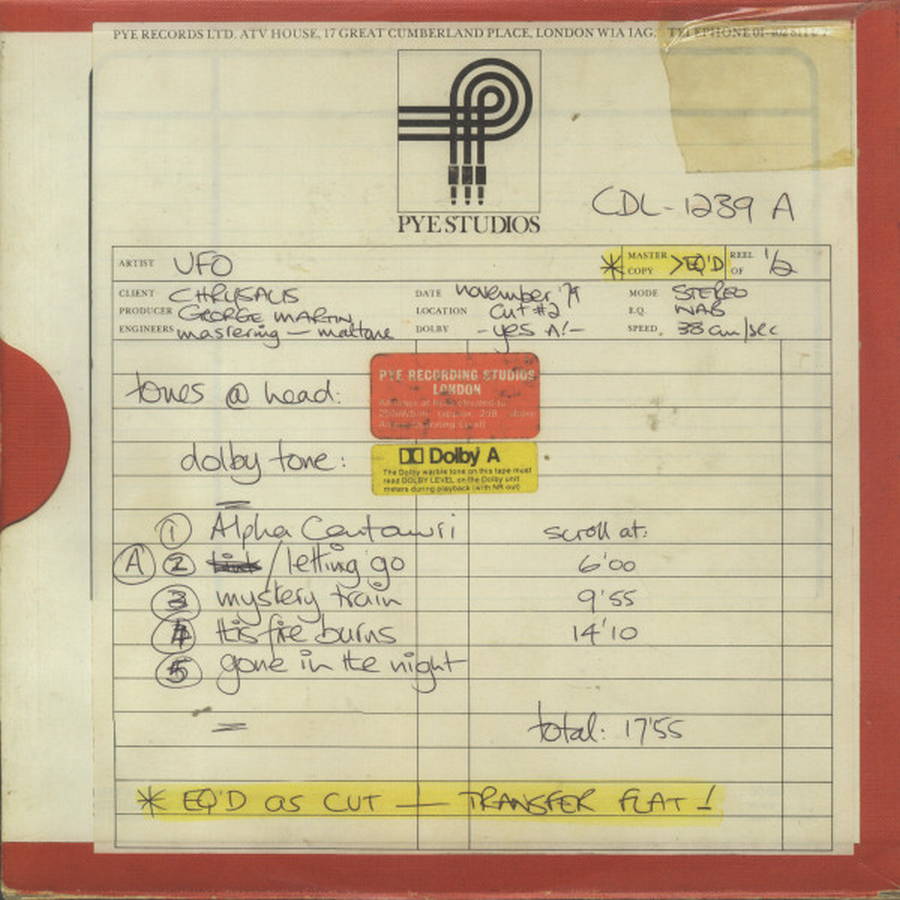 PYE RECORDS LTD. ATV HOUSE, 17 GREAT CUMBERLAND PLACE, LONDON W1A 1AG. TELEPHONE 01-402
PYE STUDIOS
CDL-1239 A
ARTIST UFO * MASTER COPY > EQ'D REEL OF 1/2
CLIENT CHRYSALIS DATE november '79 MODE STEREO
PRODUCER GEORGE MARTIN LOCATION Cut #2 E.Q. NAB
ENGINEERS mastering — maltone DOLBY -yes A!- SPEED. 38 cm/sec
tones @ head:
PYE RECORDING STUDIOS
LONDON
dolby tone:
Dolby A
The Dolby warble tone on this tape must
read DOLBY LEVEL on the Dolby unit
meters during playback (with NR out)
1 Alpha Centauri scroll at:
A 2 / letting go 6'00
3 mystery train 9'55
4 this fire burns 14'10
5 gone in the night
total: 17'55
* EQ'D as CUT — TRANSFER FLAT!